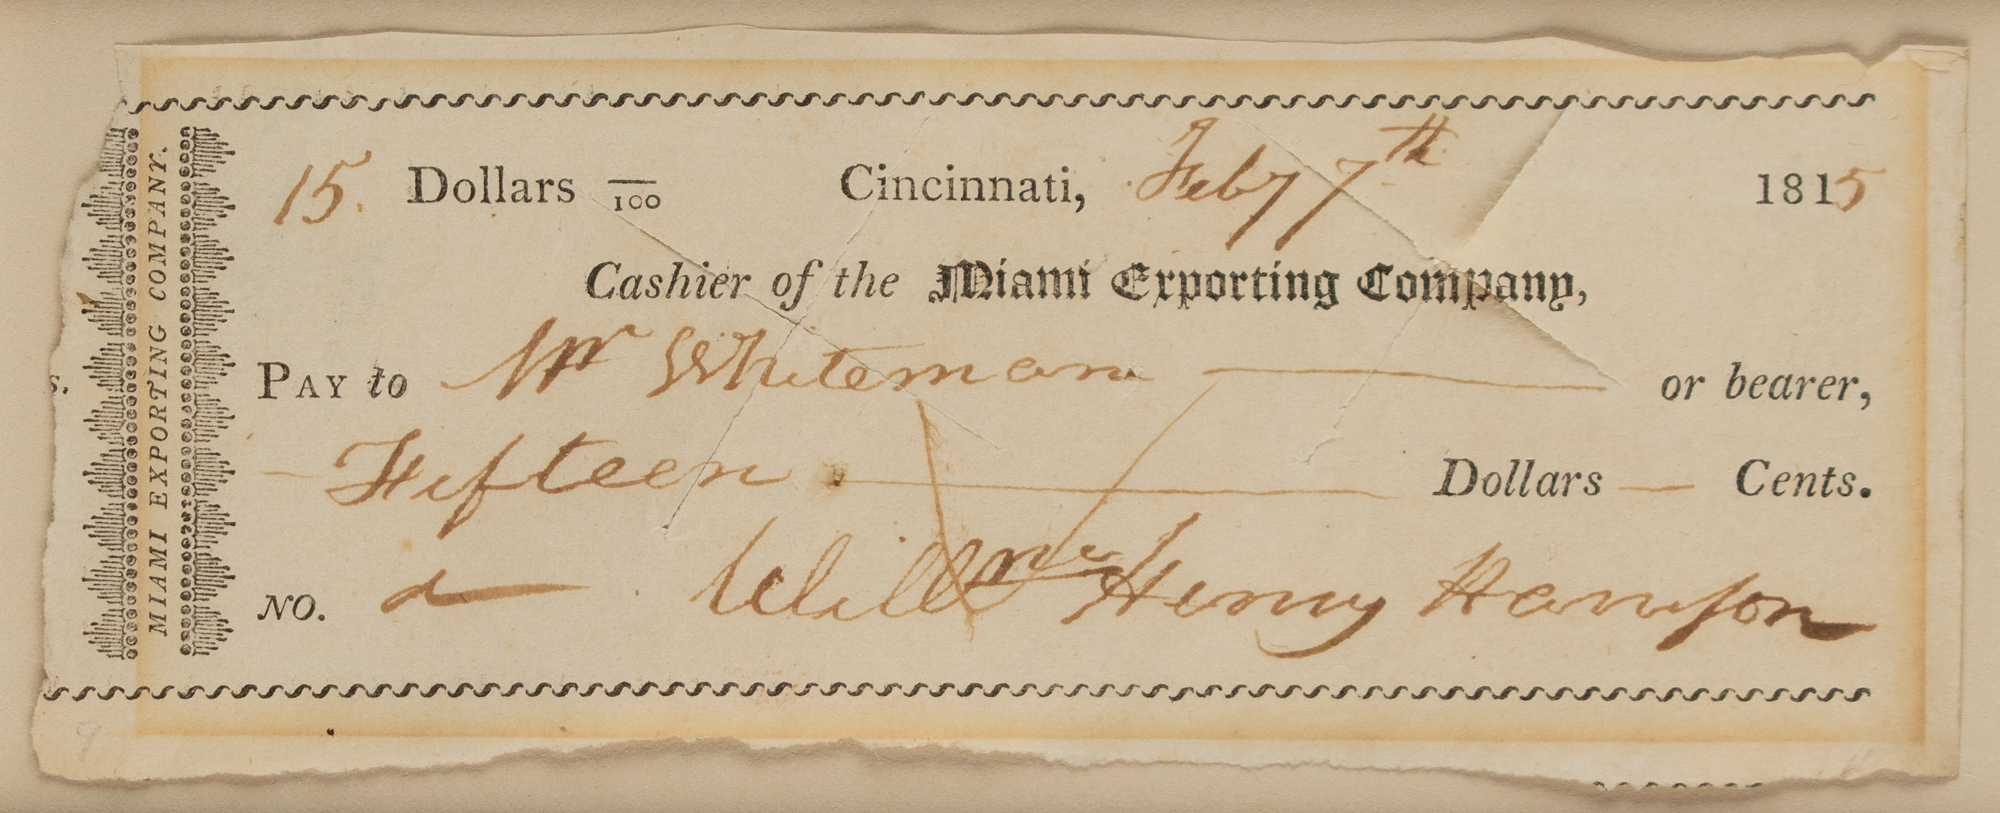 MIAMI EXPORTING COMPANY.
15. Dollars /100 Cincinnati, Feby 7th 1815
Cashier of the Miami Exporting Company,
s.
PAY to Mr Whiteman or bearer,
Fifteen Dollars — Cents.
NO. Willm Henry Harrison